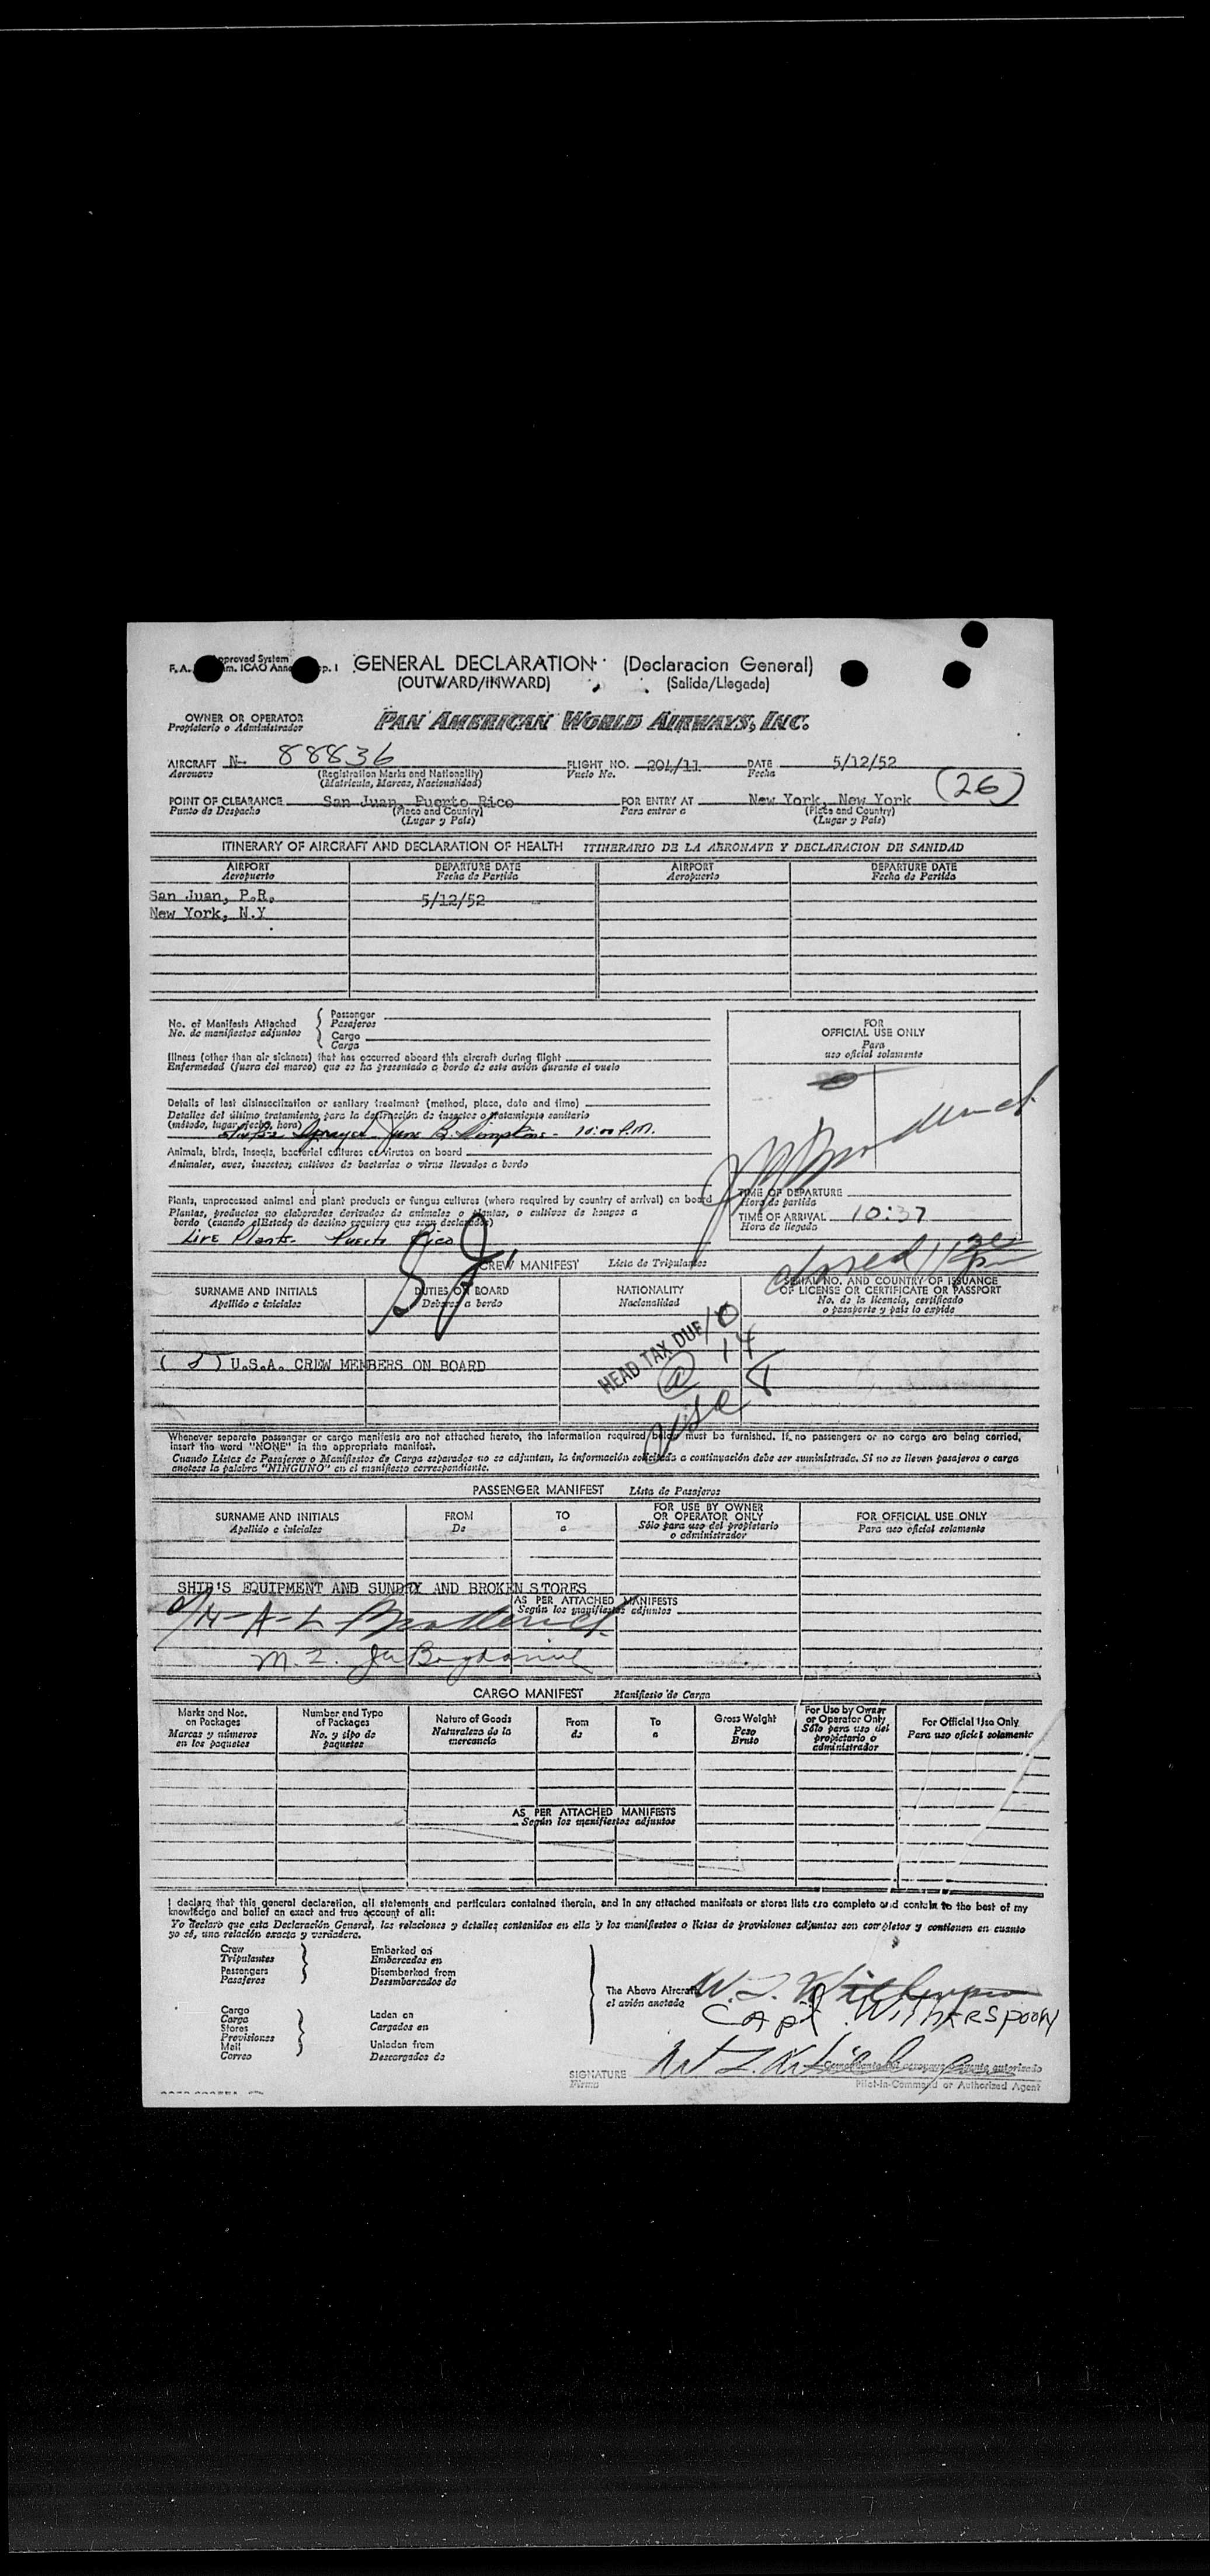 GENERAL DECLARATION (Declaracion General)
(OUTWARD/INWARD) (Salida/Llegada)
OWNER OR OPERATOR
Propietario o Administrador
PAN AMERICAN WORLD AIRWAYS, INC.
AIRCRAFT N- 88836 FLIGHT NO. 204/11 DATE 5/12/52
Aeronave (Registration Marks and Nationality) Vuelo No. Fecha
(Matricula, Marcas, Nacionalidad)
(26)
POINT OF CLEARANCE San Juan, Puerto Rico FOR ENTRY AT New York, New York
Punto de Despacho (Place and Country) Para entrar a (Place and Country)
(Lugar y Pais) (Lugar y Pais)
ITINERARY OF AIRCRAFT AND DECLARATION OF HEALTH ITINERARIO DE LA AERONAVE Y DECLARACION DE SANIDAD
AIRPORT DEPARTURE DATE AIRPORT DEPARTURE DATE
Aeropuerto Fecha de Partida Aeropuerto Fecha de Partida
San Juan, P.R. 5/12/52
New York, N.Y
No. of Manifests Attached
No. de manifiestos adjuntos
Passenger
Pasajeros
Cargo
Carga
FOR
OFFICIAL USE ONLY
Para
uso oficial solamente
Illness (other than air sickness) that has occurred aboard this aircraft during flight
Enfermedad (fuera del mareo) que se ha presentado a bordo de este avión durante el vuelo
Details of last disinsectization or sanitary treatment (method, place, date and time)
Detalles del último tratamiento para la destrucción de insectos o tratamiento sanitario
(método, lugar, fecha, hora)
Sprayed June B. Simpkins - 10:00 P.M.
Animals, birds, insects, bacterial cultures or viruses on board
Animales, aves, insectos, cultivos de bacterias o virus llevados a bordo
Plants, unprocessed animal and plant products or fungus cultures (where required by country of arrival) on board
Plantas, productos no elaborados derivados de animales o plantas, o cultivos de hongos a
bordo (cuando el Estado de destino requiera que sean declarados)
Live Plants - Puerto Rico
TIME OF DEPARTURE
Hora de partida
TIME OF ARRIVAL 10:37
Hora de llegada
CREW MANIFEST Lista de Tripulantes
SURNAME AND INITIALS DUTIES ON BOARD NATIONALITY SERIAL NO. AND COUNTRY OF ISSUANCE
Apellido e iniciales Deberes a bordo Nacionalidad OF LICENSE OR CERTIFICATE OR PASSPORT
No. de la licencia, certificado
o pasaporte y pais lo expide
HEAD TAX DUE
(5) U.S.A. CREW MEMBERS ON BOARD
Whenever separate passenger or cargo manifests are not attached hereto, the information required below must be furnished. If no passengers or no cargo are being carried,
insert the word "NONE" in the appropriate manifest.
Cuando Listas de Pasajeros o Manifiestos de Carga separados no se adjuntan, la información solicitada a continuación debe ser suministrada. Si no se lleven pasajeros o carga
anotese la palabra "NINGUNO" en el manifiesto correspondiente.
PASSENGER MANIFEST Lista de Pasajeros
SURNAME AND INITIALS FROM TO FOR USE BY OWNER FOR OFFICIAL USE ONLY
Apellido e iniciales De a OR OPERATOR ONLY Para uso oficial solamente
Sólo para uso del propietario
o administrador
SHIP'S EQUIPMENT AND SUNDRY AND BROKEN STORES
AS PER ATTACHED MANIFESTS
Según los manifiestos adjuntos
CARGO MANIFEST Manifiesto de Carga
Marks and Nos. on Packages
Marcas y números en los paquetes
Number and Type of Packages
No. y tipo de paquetes
Nature of Goods
Naturaleza de la mercancía
From
de
To
a
Gross Weight
Peso Bruto
For Use by Owner or Operator Only
Sólo para uso del propietario o administrador
For Official Use Only
Para uso oficial solamente
AS PER ATTACHED MANIFESTS
Según los manifiestos adjuntos
I declare that this general declaration, all statements and particulars contained therein, and in any attached manifests or stores lists are complete and contain to the best of my
knowledge and belief an exact and true account of all:
Yo declaro que esta Declaración General, las relaciones y detalles contenidos en ella y los manifiestos o listas de provisiones adjuntos son completos y contienen en cuanto
yo sé, una relación exacta y verdadera.
Crew
Tripulantes
Passengers
Pasajeros
Embarked on
Embarcados en
Disembarked from
Desembarcados de
Cargo
Carga
Stores
Provisiones
Mail
Correo
Laden on
Cargados en
Unladen from
Descargados de
The Above Aircraft
el avión anotado
Capt. Witherspoon
SIGNATURE
Firma
Pilot-in-Command or Authorized Agent